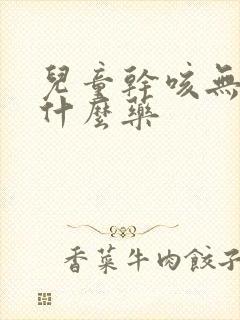 兒童幹咳無
什麼藥
香菜牛肉餃子